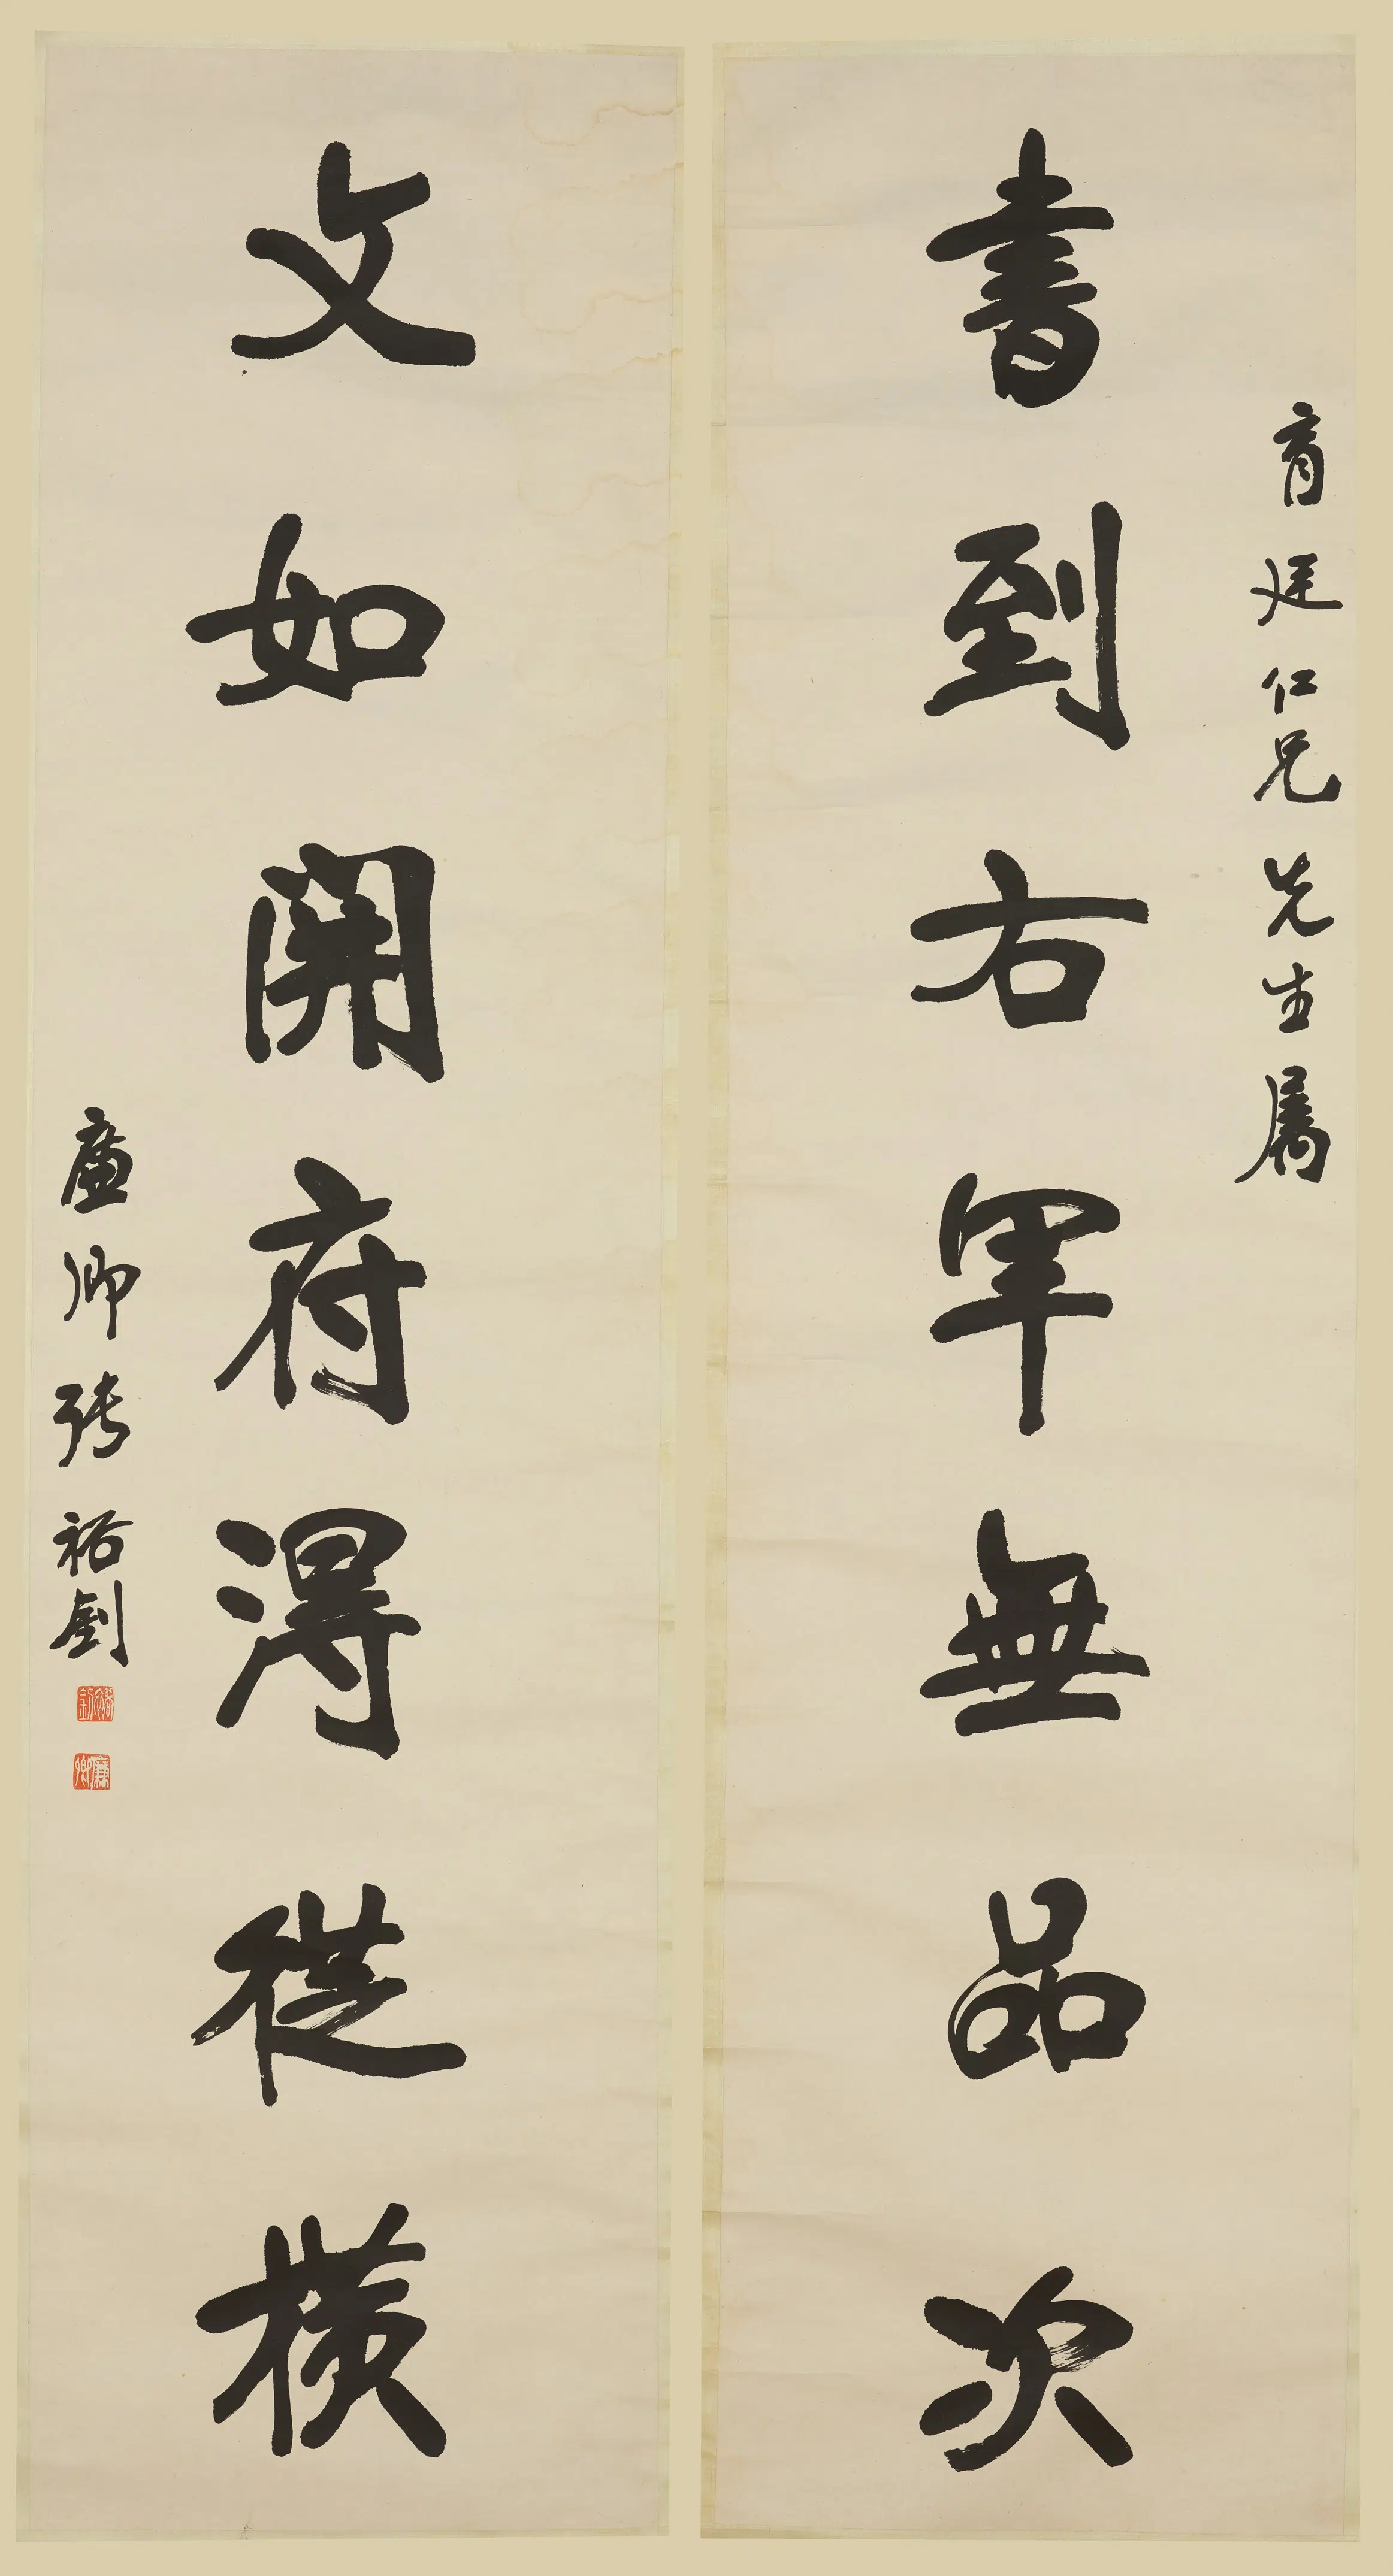 育廷仁兄先生属
書到右軍無品次
文如開府得從橫
廉卿張裕釗
裕釗
廉卿